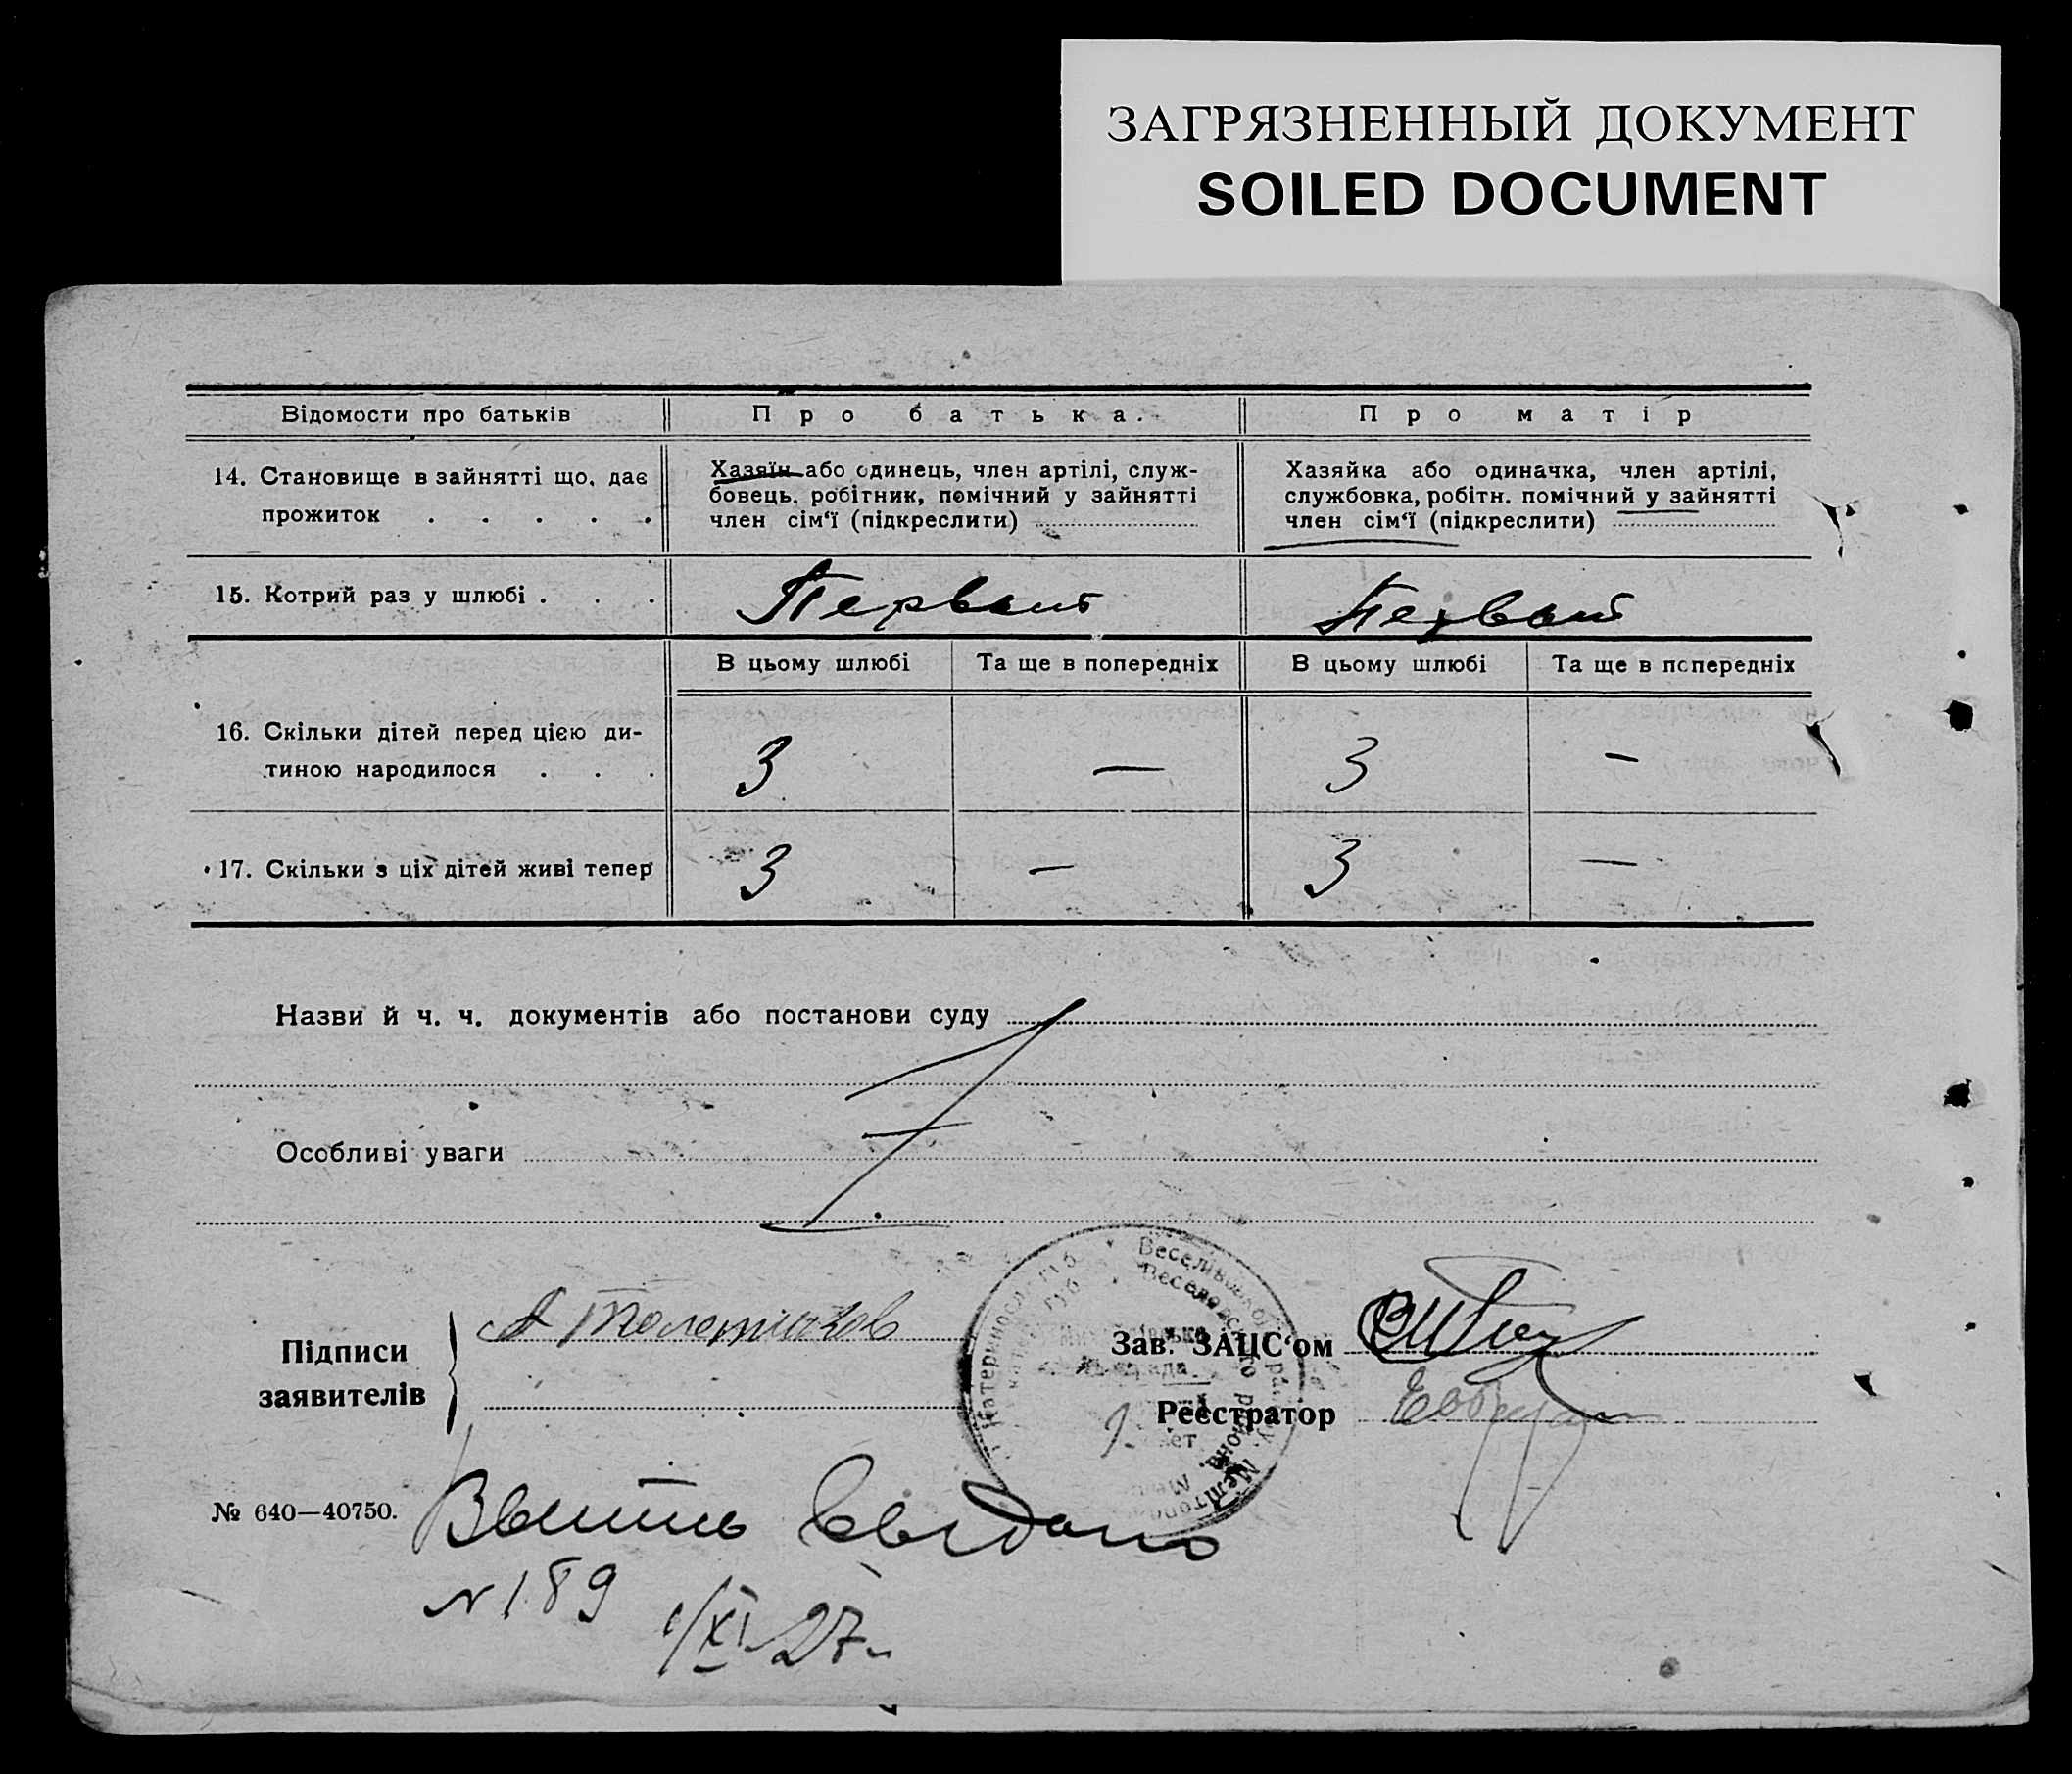 ЗАГРЯЗНЕННЫЙ ДОКУМЕНТ
SOILED DOCUMENT
Відомости про батьків
Про батька.
Про матір
14. Становище в зайнятті що, дає
прожиток . . . . .
Хазяїн або одинець, член артілі, служ-
бовець, робітник, помічний у зайнятті
член сім‘ї (підкреслити)
Хазяйка або одиначка, член артілі,
службовка, робітн. помічний у зайнятті
член сім‘ї (підкреслити)
15. Котрий раз у шлюбі . . .
Первый
Первый
В цьому шлюбі
Та ще в попередніх
В цьому шлюбі
Та ще в попередніх
16. Скільки дітей перед цією ди-
тиною народилося . . .
3
—
3
—
17. Скільки з ціх дітей живі тепер
3
—
3
—
Назви й ч. ч. документів або постанови суду
Особливі уваги
Підписи
заявителів
Зав. ЗАЦС‘ом
Реєстратор
№ 640—40750.
N 189 1/XI 27г.